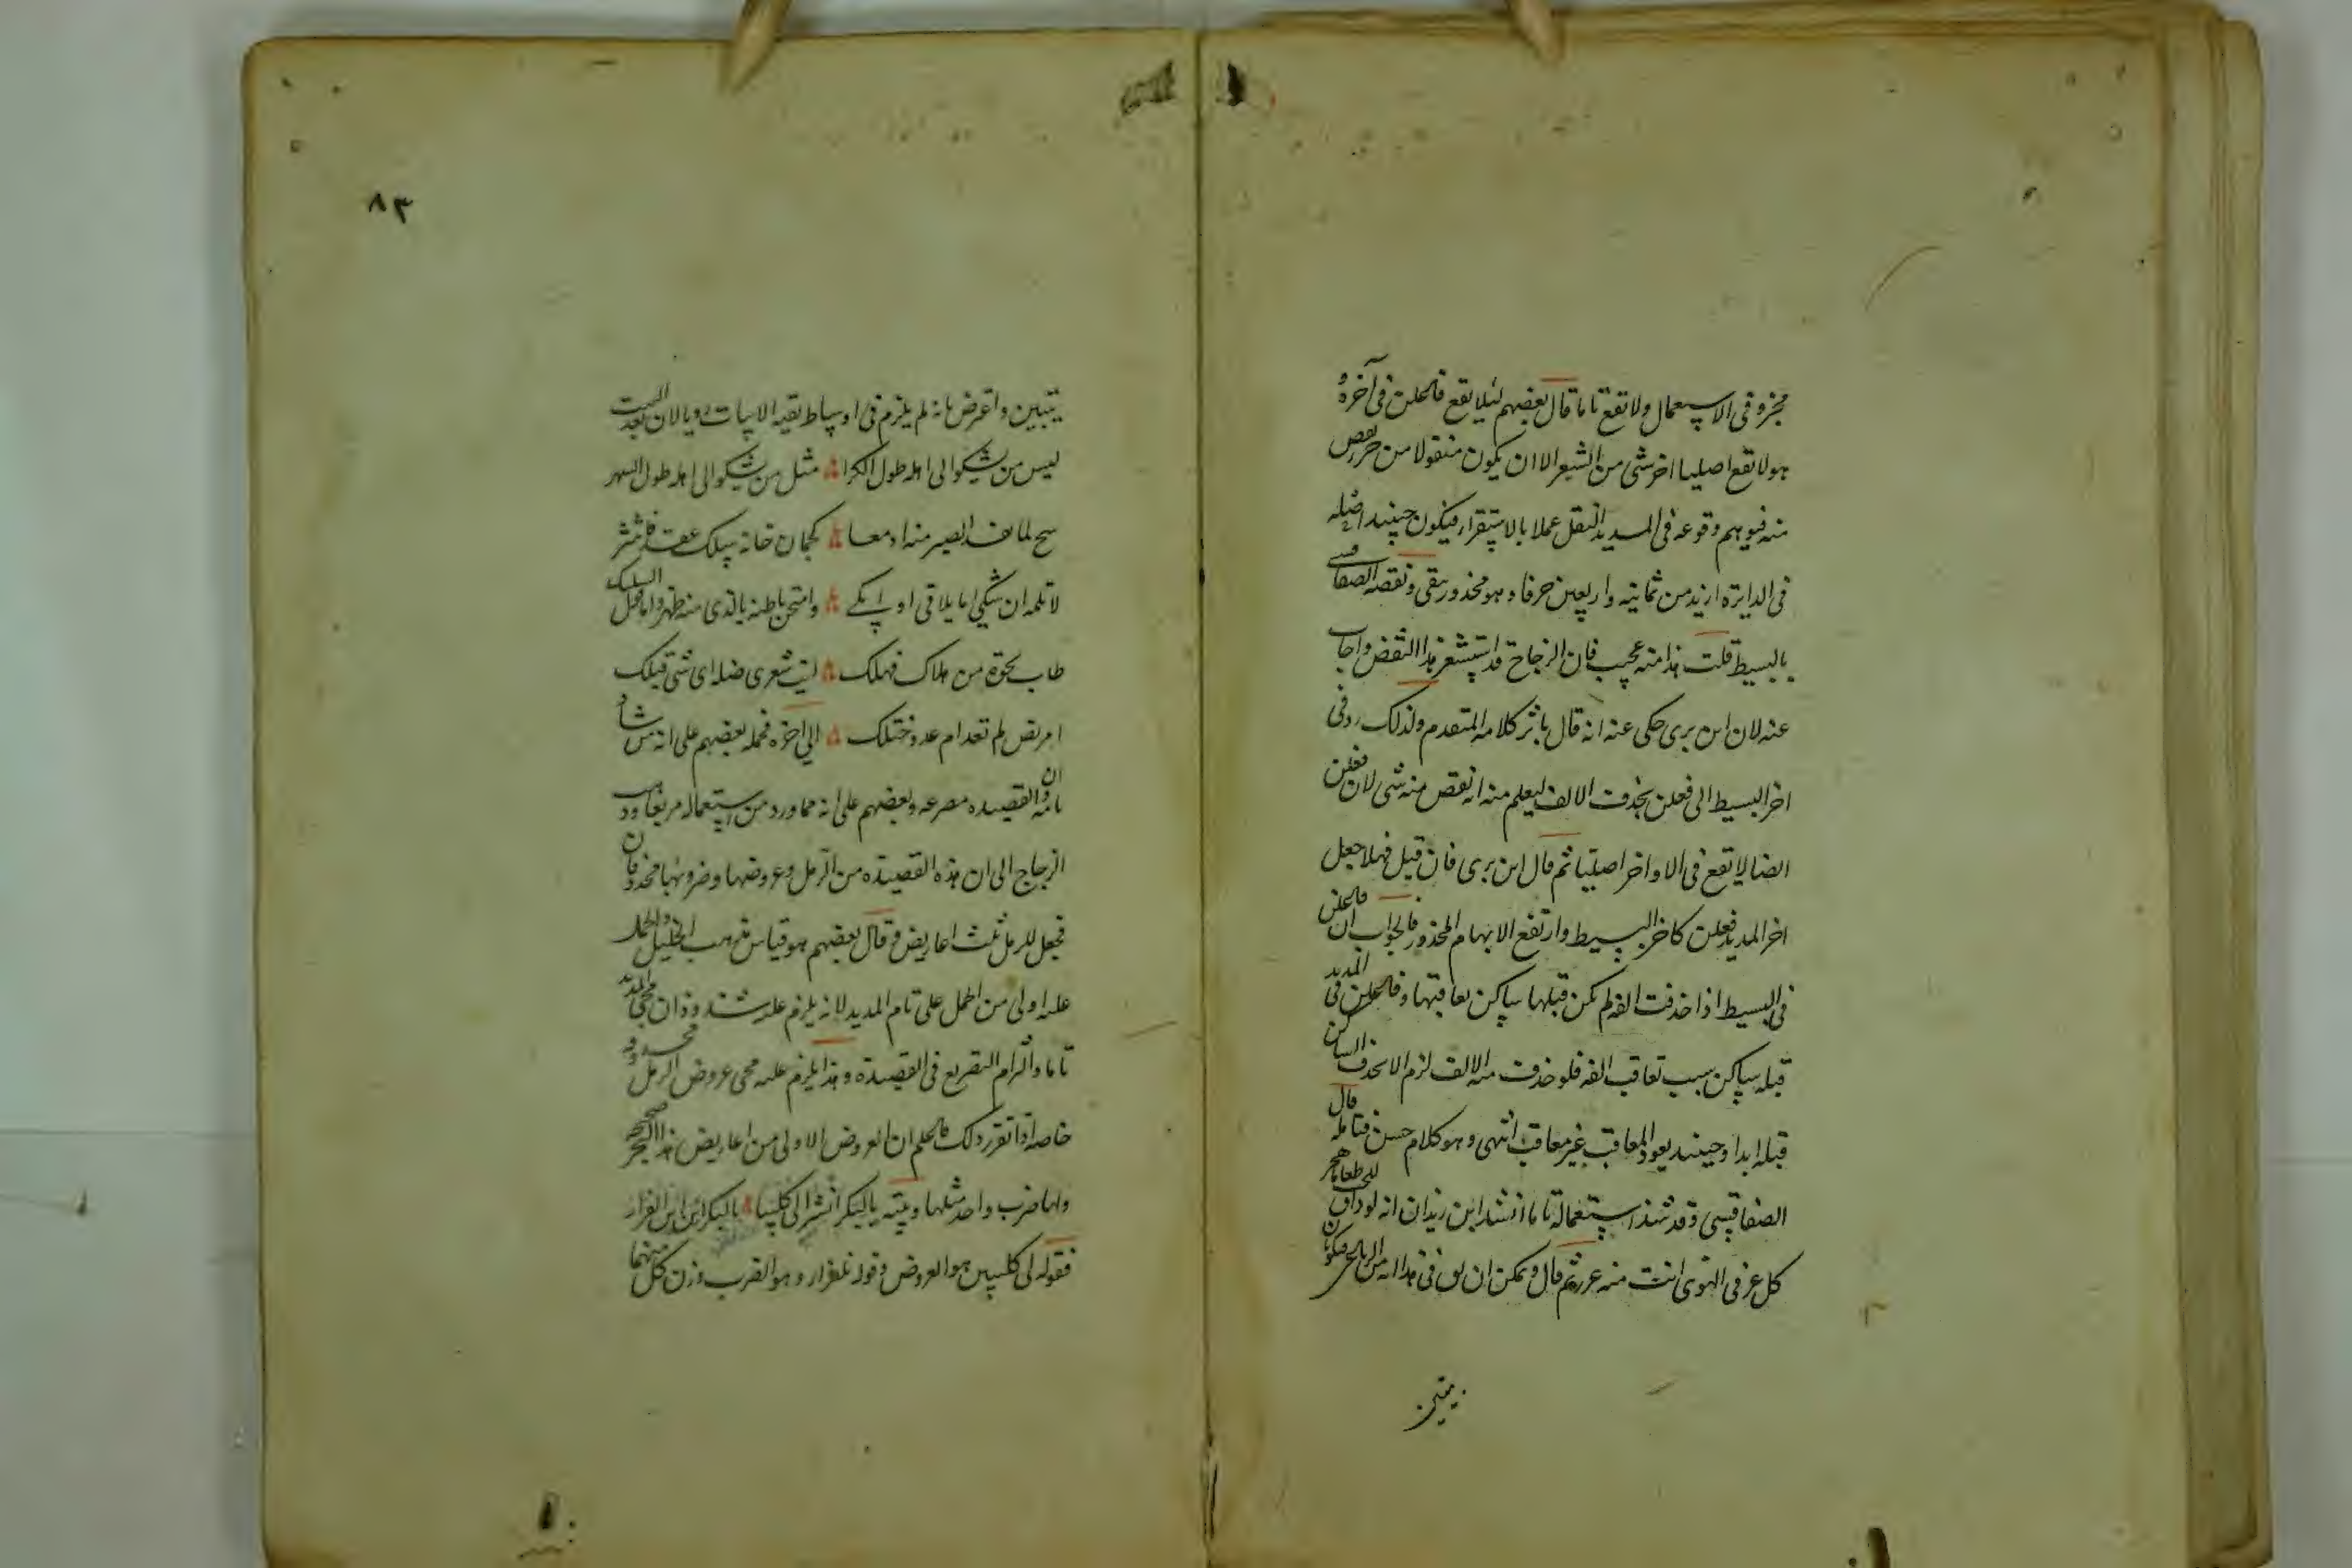 مجزو فى الاستعمال ولا تقع تاما قال بعضهم لئلا يقع فاعلن فى آخره و
هو لا تقع اصليا اخر شى من الشعر الا ان يكون منقولا من حرف نقص
منه فيوهم وقوعه فى المديد النقل عملا بالاستقراء فيكون حينيد اصله
فى الدايرة ازيد من ثمانيه واربعين حرفا وهو محذور بقى ونقضه الصفاقسى
بالبسيط قلت هذا منه عجيب فان الزجاج قد استشعر هذا النقض واجاب
عنه لان ابن برى حكى عنه انه قال باثر كلامه المتقدم ولذلك رد فى
اخر البسيط الى فعلن بحذف الالف ليعلم منه انه نقص منه شى لان فعلن
ايضا لا تقع فى الاواخر اصليا ثم قال ابن برى فان قيل فهلا جعل
اخر المديد فعلن كاخر البسيط وارتفع الابهام المحذور فالجواب ان فاعلن
فى البسيط اذا حذفت الفه لم يكن قبلها ساكن يعاقبها وفاعلن فى المديد
قبله ساكن سبب تعاقب الفه فلو حذفت منه الالف لزم الا يحذف الساكن
قبله ابدا وحينيد يعود المعاقب غير معاقب انتهى وهو كلام حسن فتامله قال
الصفاقسى وقد شذ استعماله تاما انشد ابن زيدان انه لو ذاق للحب طعاما هجر
كل عز فى الهوى انت منه غرر ثم قال ويمكن ان يق فى هذا انه من الرباعى فيكون
يتبين
٨٣
يتبين واعترض بانه لم يلزم فى اوساط بقيه الابيات رويا لان بعد البيت
ليس من يشكو الى اهله طول الكرا مثل من يشكو الى اهله طول السهر
سح لما نفد الصبر منه ادمعا كجمان خانه سلك عقد فانتثر
لا تلمه ان شكى ما يلاقى او بكى وامتحن باطنه بالذى منه ظهر واما قول السليك
طاب نحوة من هلاك فهلك ليت شعرى ضله اى شى قتلك
امريض لم تعد ام عدو ختلك الى اخره فحمله بعضهم على انه من شاذ
تامه وان القصيده مصرعه وبعضهم على انه مما ورد من استعماله مربعا وذهب
الزجاج الى ان هذه القصيده من الرمل وعروضها وضربها محذوفان
فجعل للرمل ثلث اعاريض وقال بعضهم هو قياس مذهب الخليل والحمل
عليه اولى من الحمل على تام المديد لانه يلزم عليه شذوذان مجى المديد
تاما والتزام التصريع فى القصيدة وهذا يلزم عليه مجى عروض الرمل محذوفه
خاصه اذا تقرر ذلك فاعلم ان العروض الاولى من اعاريض هذا البحر صحيحه
ولها ضرب واحد مثلها وبيته يا لبكر انشروا لى كليبا يا لبكر اين اين الفرار
فقوله لى كليبن هو العروض وقوله نلفرارو هو الضرب وزن كل منهما